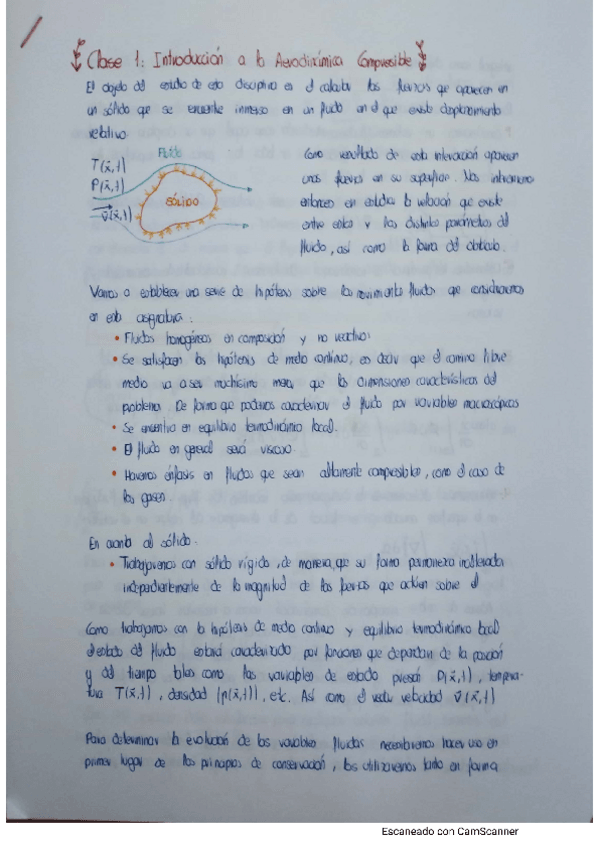 Clase 1: Introducción a la Aerodinámica Compresible
El objeto del estudio de esta disciplina es el calcular las fuerzas que aparecen en
un sólido que se encuentre inmerso en un fluido en el que existe desplazamiento
relativo.
Fluido
T(x̄,t)
P(x̄,t)
v̄(x̄,t)
SÓLIDO
Como resultado de esta interacción aparecen
unas fuerzas en su superficie. Nos interesa
entonces en estudiar la relación que existe
entre estas y los distintos parámetros del
fluido, así como la forma del obstáculo.
Vamos a establecer una serie de hipótesis sobre los movimientos fluidos que consideraremos
en esta asignatura:
• Fluidos homogéneos en composición y no reactivos
• Se satisfacen las hipótesis de medio continuo, es decir que el camino libre
medio va a ser muchísimo menor que las dimensiones características del
problema. De forma que podremos caracterizar el fluido por variables macroscópicas
• Se encuentra en equilibrio termodinámico local.
• El fluido en general será viscoso.
• Haremos énfasis en fluidos que sean altamente compresibles, como el caso de
los gases
En cuanto al sólido:
• Trabajaremos con sólido rígido, de manera que su forma permanezca inalterada
independientemente de la magnitud de las fuerzas que actúen sobre él
Como trabajamos con la hipótesis de medio continuo y equilibrio termodinámico local
el estado del fluido estará caracterizado por funciones que dependan de la posición
y del tiempo tales como las variables de estado presión P(x̄,t), tempera-
tura T(x̄,t), densidad (ρ(x̄,t)), etc. Así como el vector velocidad v̄(x̄,t)
Para determinar la evolución de las variables fluidas necesitaremos hacer uso en
primer lugar de los principios de conservación, los utilizaremos tanto en forma
Escaneado con CamScanner